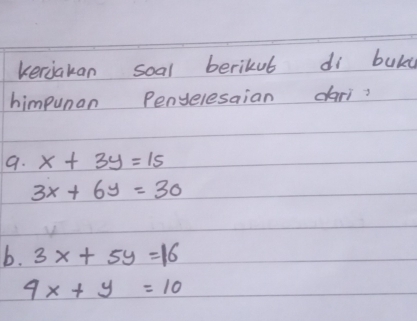 kerjakan soal berikut di buku
himpunan Penyelesaian dari :
a. x + 3y = 15
3x + 6y = 30
b. 3x + 5y = 16
4x + y = 10